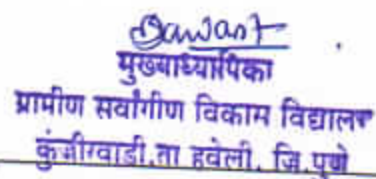 Sawant
मुख्याध्यापिका
ग्रामीण सर्वांगीण विकास विद्यालय
कुंजीरवाडी, ता हवेली, जि. पुणे